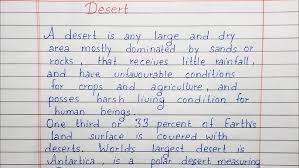 Desert
A desert is any large and dry
area mostly dominated by sands or
rocks, that receives little rainfall,
and have unfavourable conditions
for crops and agriculture, and
posses harsh living condition for
human beings.
One third or 33 percent of Earth's
land surface is covered with
deserts. Worlds largest desert is
Antartica, is a polar desert measuring